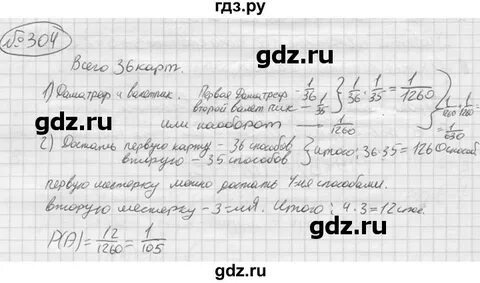 гдз.ру
№304
Всего 36 карт.
1) Дама треф и валет пик. Первая дама треф - 1/36 } 1/36 · 1/35 = 1/1260
второй валет пик - 1/35
или наоборот - 1/1260 } 1/1260 + 1/1260 = 1/630
2) Достать первую карту - 36 способов } итого: 36·35 = 1260 способ
вторую - 35 способов
первую шестерку можно достать 4-мя способами.
вторую шестерку - 3-мя. Итого: 4·3=12 спос.
P(A) = 12/1260 = 1/105
gdz.ru
gdz.ru
gdz.ru
gdz.ru
gdz.ru
gdz.ru
gdz.ru
gdz.ru